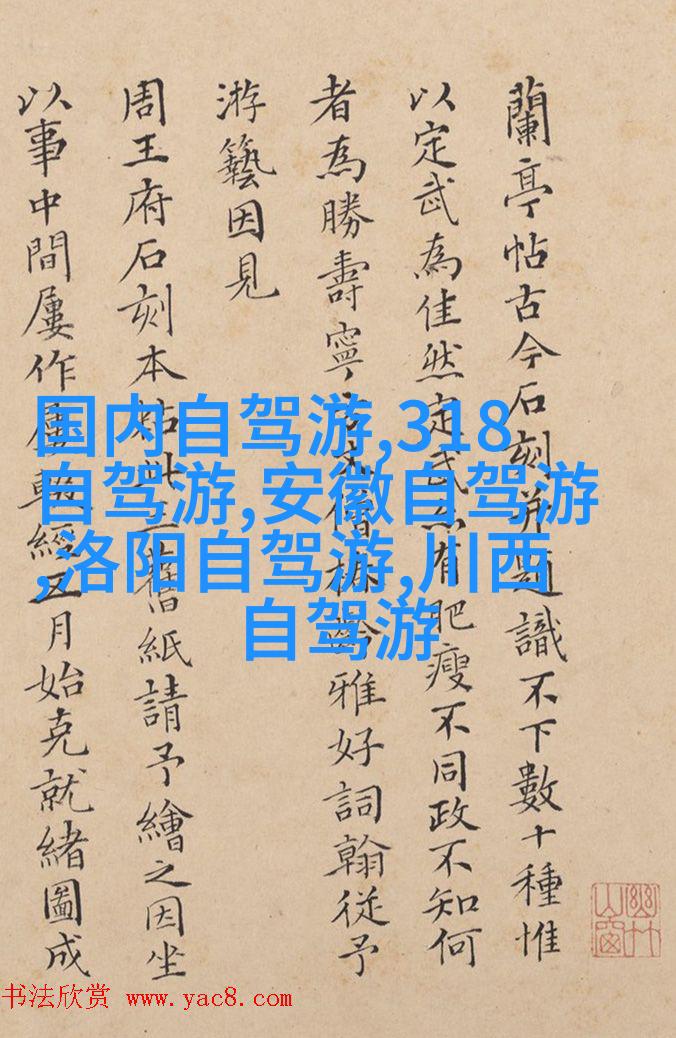 蘭亭帖古今石刻并題識不下數十種惟
以定武為佳然定武亦有肥瘦不同政不知何
者為勝壽寧僧雅好詞翰從予
游藝因見
周王府石刻本舊紙請予繪之因坐
以事中間屢作屢輟經五月始克就緒圖成
国内自驾游,318
自驾游,安徽自驾游
,洛阳自驾游,川西
自驾游
幽竹山窗
书法欣赏 www.yac8.com